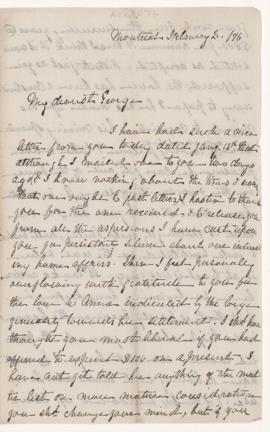 Montreal February 2. /96
My dearest George
I have had such a nice
letter from you to-day dated Jany. 15th that
although I mailed one to you two days
ago & I know nothing about the time
that one ought to past letters I hasten to thank
you for the one received, & to release you
from all the aspersions I have cast upon
you for persistently silence about our intense
home affairs. Then I feel personally
overflowing with gratitude to you for
the love to Anna indicated by the large
generosity towards her settlement. I shd. have
thought you most liberal if you had
offered to spend $100 on a present. I
have not yet told her anything of the mat-
ter lest on more mature consideration
you shd. change your mind, but if you